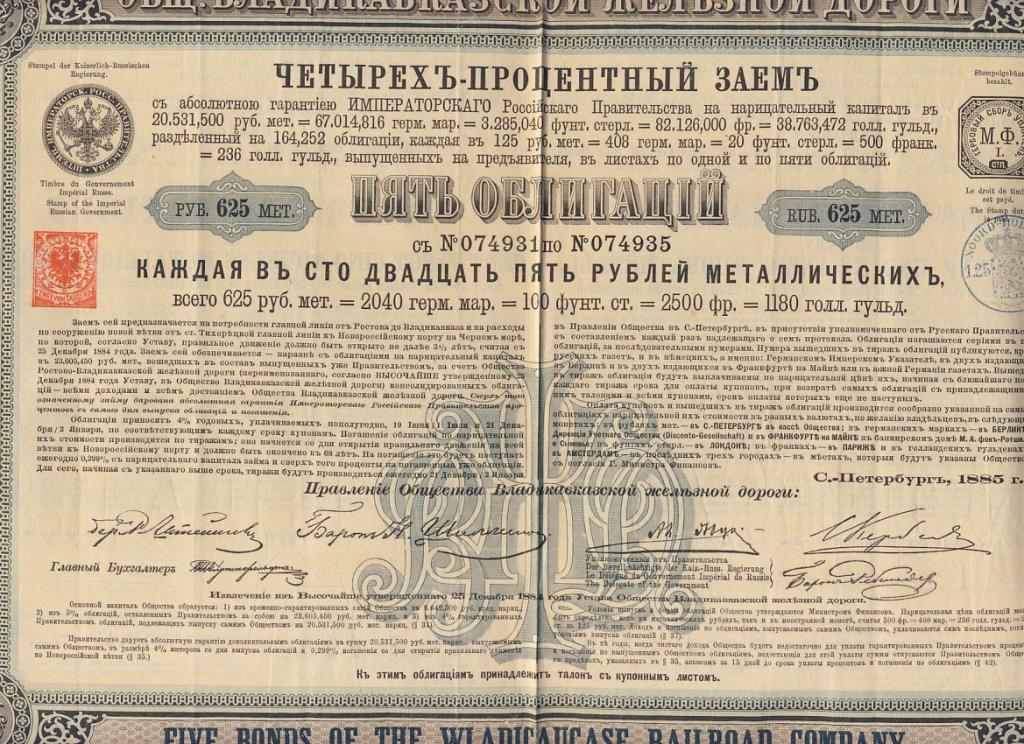 ОБЩ. ВЛАДИКАВКАЗСКОЙ ЖЕЛѢЗНОЙ ДОРОГИ
Stempel der Kaiserlich-Russischen
Regierung.
ЧЕТЫРЕХЪ-ПРОЦЕНТНЫЙ ЗАЕМЪ
съ абсолютною гарантіею ИМПЕРАТОРСКАГО Россійскаго Правительства на нарицательный капиталъ въ
20.531,500 руб. мет. = 67.014,816 герм. мар. = 3.285,040 фунт. стерл. = 82.126,000 фр. = 38.763,472 голл. гульд.,
раздѣленный на 164,252 облигаціи, каждая въ 125 руб. мет. = 408 герм. мар. = 20 фунт. стерл. = 500 франк.
= 236 голл. гульд., выпущенныхъ на предъявителя, въ листахъ по одной и по пяти облигацій.
Stempelgebühr
bezahlt.
М.Ф.
I.
СП.
Timbre du Gouvernement
Impérial Russe.
Stamp of the Imperial
Russian Government.
Le droit de timbre
est payé.
The Stamp duty
РУБ. 625 МЕТ.
ПЯТЬ ОБЛИГАЦІЙ
RUB. 625 MET.
съ №074931 по №074935
КАЖДАЯ ВЪ СТО ДВАДЦАТЬ ПЯТЬ РУБЛЕЙ МЕТАЛЛИЧЕСКИХЪ,
всего 625 руб. мет. = 2040 герм. мар. = 100 фунт. ст. = 2500 фр. = 1180 голл. гульд.
1.25
Заемъ сей предназначается на потребности главной линіи отъ Ростова до Владикавказа и на расходы
по сооруженію новой вѣтви отъ ст. Тихорѣцкой главной линіи къ Новороссійскому порту на Черномъ морѣ,
по которой, согласно Уставу, правильное движеніе должно быть открыто не далѣе 3½ лѣтъ, считая съ
25 Декабря 1884 года. Заемъ сей обезпечивается — наравнѣ съ облигаціями на нарицательный капиталъ
въ 23.605,450 руб. мет., вошедшихъ въ составъ выпущенныхъ уже Правительствомъ, за счетъ Общества
Ростово-Владикавказской желѣзной дороги (переименованнаго, согласно ВЫСОЧАЙШЕ утвержденному 25
Декабря 1884 года Уставу, въ Общество Владикавказской желѣзной дороги) консолидированныхъ облига-
цій — всѣми доходами и всѣмъ достояніемъ Общества Владикавказской желѣзной дороги. Сверхъ того
означенному займу дарована абсолютная гарантія Императорскаго Россійскаго Правительства про-
центовъ съ самаго дня выпуска облигацій и погашенія.
Облигаціи приносятъ 4% годовыхъ, уплачиваемыхъ пополугодно, 19 Іюня/1 Іюля и 21 Де-
кабря/2 Января, по соотвѣтствующимъ каждому сроку купонамъ. Погашеніе облигацій по нарицатель-
ихъ стоимости производится по тиражамъ; оно начнется со дня открытія правильнаго движенія на всей
вѣтви къ Новороссійскому порту и должно быть окончено въ 68 лѣтъ. На погашеніе это будетъ поступать
ежегодно 0,299% съ нарицательнаго капитала займа и сверхъ того проценты по погашеннымъ облигаціямъ.
Для сего, начиная съ указаннаго выше срока, тиражи будутъ производиться ежегодно 21 Декабря/2 Января
въ Правленіи Общества въ С.-Петербургѣ, въ присутствіи уполномоченнаго отъ Русскаго Правительс
съ составленіемъ каждый разъ надлежащаго о семъ протокола. Облигаціи погашаются серіями въ
облигацій, за послѣдовательными нумерами. Нумера вышедшихъ въ тиражъ облигацій публикуются, кр
русскихъ газетъ, и въ нѣмецкихъ, а именно: Германскомъ Имперскомъ Указателѣ, въ двухъ издаю
въ Берлинѣ и въ двухъ издающихся въ Франкфуртѣ на Майнѣ или въ южной Германіи газетахъ. Вышед
въ тиражъ облигаціи будутъ выплачиваемы по нарицательной цѣнѣ ихъ, начиная съ ближайшаго по
каждаго тиража срока для оплаты купоновъ, при возвратѣ самыхъ облигацій съ принадлежащими
талонами и всѣми купонами, срокъ оплаты которыхъ еще не наступилъ.
Оплата купоновъ и вышедшихъ въ тиражъ облигацій производится сообразно указанной на самыхъ
облигаціяхъ нарицательной ихъ стоимости въ разныхъ валютахъ, по желанію владѣльцевъ, въ слѣдующ
мѣстахъ: въ рубляхъ мет. — въ С.-ПЕТЕРБУРГѢ въ кассѣ Общества; въ германскихъ маркахъ — въ БЕРЛИН
Дирекціи Учетнаго Общества (Disconto-Gesellschaft) и въ ФРАНКФУРТѢ на МАЙНѢ въ банкирскомъ домѣ М. А. фонъ-Ротши
и Сыновья; въ фунтахъ стерл. — въ ЛОНДОНѢ; въ франкахъ — въ ПАРИЖѢ и въ голландскихъ гульденахъ
въ АМСТЕРДАМѢ — въ послѣднихъ трехъ городахъ — въ мѣстахъ, которыя будутъ указаны Обществ
съ согласія Г. Министра Финансовъ.
С.-Петербургъ, 1885 г.
Правленіе Общества Владикавказской желѣзной дороги:
Главный Бухгалтеръ
Уполномоченный отъ Правительства
Der Bevollmächtigte der Kais.-Russ. Regierung
Le Délégué du Gouvernement Impérial de Russie
The Delegate of the Government
Извлеченіе изъ Высочайше утвержденнаго 25 Декабря 1884 года Устава Общества Владикавказской желѣзной дороги.
Основной капиталъ Общества образуется: 1) изъ временно-гарантированныхъ акцій Общества
Правительство даруетъ абсолютную гарантію дополнительнымъ облигаціямъ на сумму 20.531,500 руб. мет. нариц., выпускаемымъ
самимъ Обществомъ, въ размѣрѣ 4% интереса со дня выпуска облигацій и 0,299% погашенія со дня открытія правильнаго движенія
по Новороссійской вѣтви (§ 35).
Къ этимъ облигаціямъ принадлежитъ талонъ съ купоннымъ листомъ.
FIVE BONDS OF THE WLADICAUCASE RAILROAD COMPANY